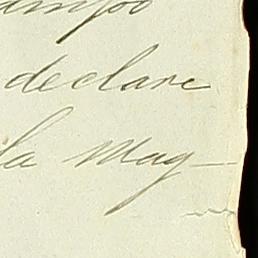 declare
la Mag-